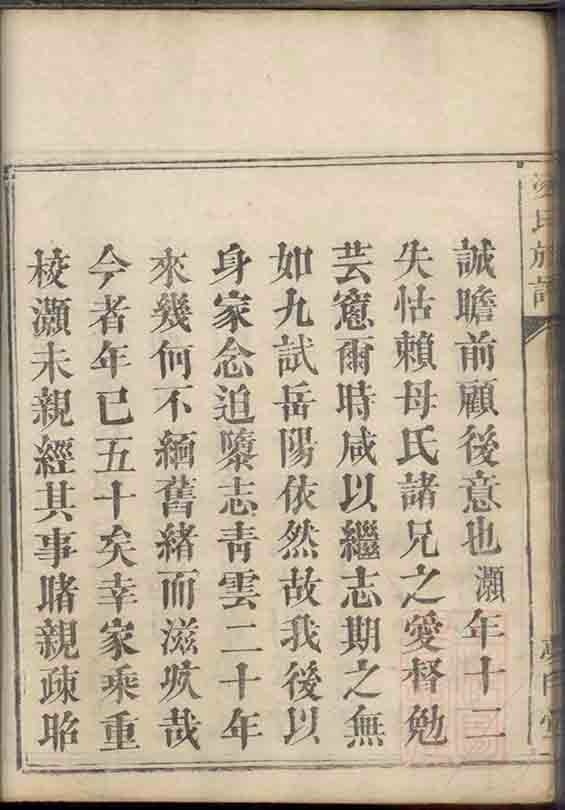 誠瞻前顧後意也灝年十二
失怙賴母氏諸兄之愛督勉
芸窻爾時咸以繼志期之無
如九試岳陽依然故我後以
身家念迫隳志青雲二十年
來幾何不緬舊緒而滋疚哉
今者年已五十矣幸家乘重
校灝未親經其事睹親疎昭